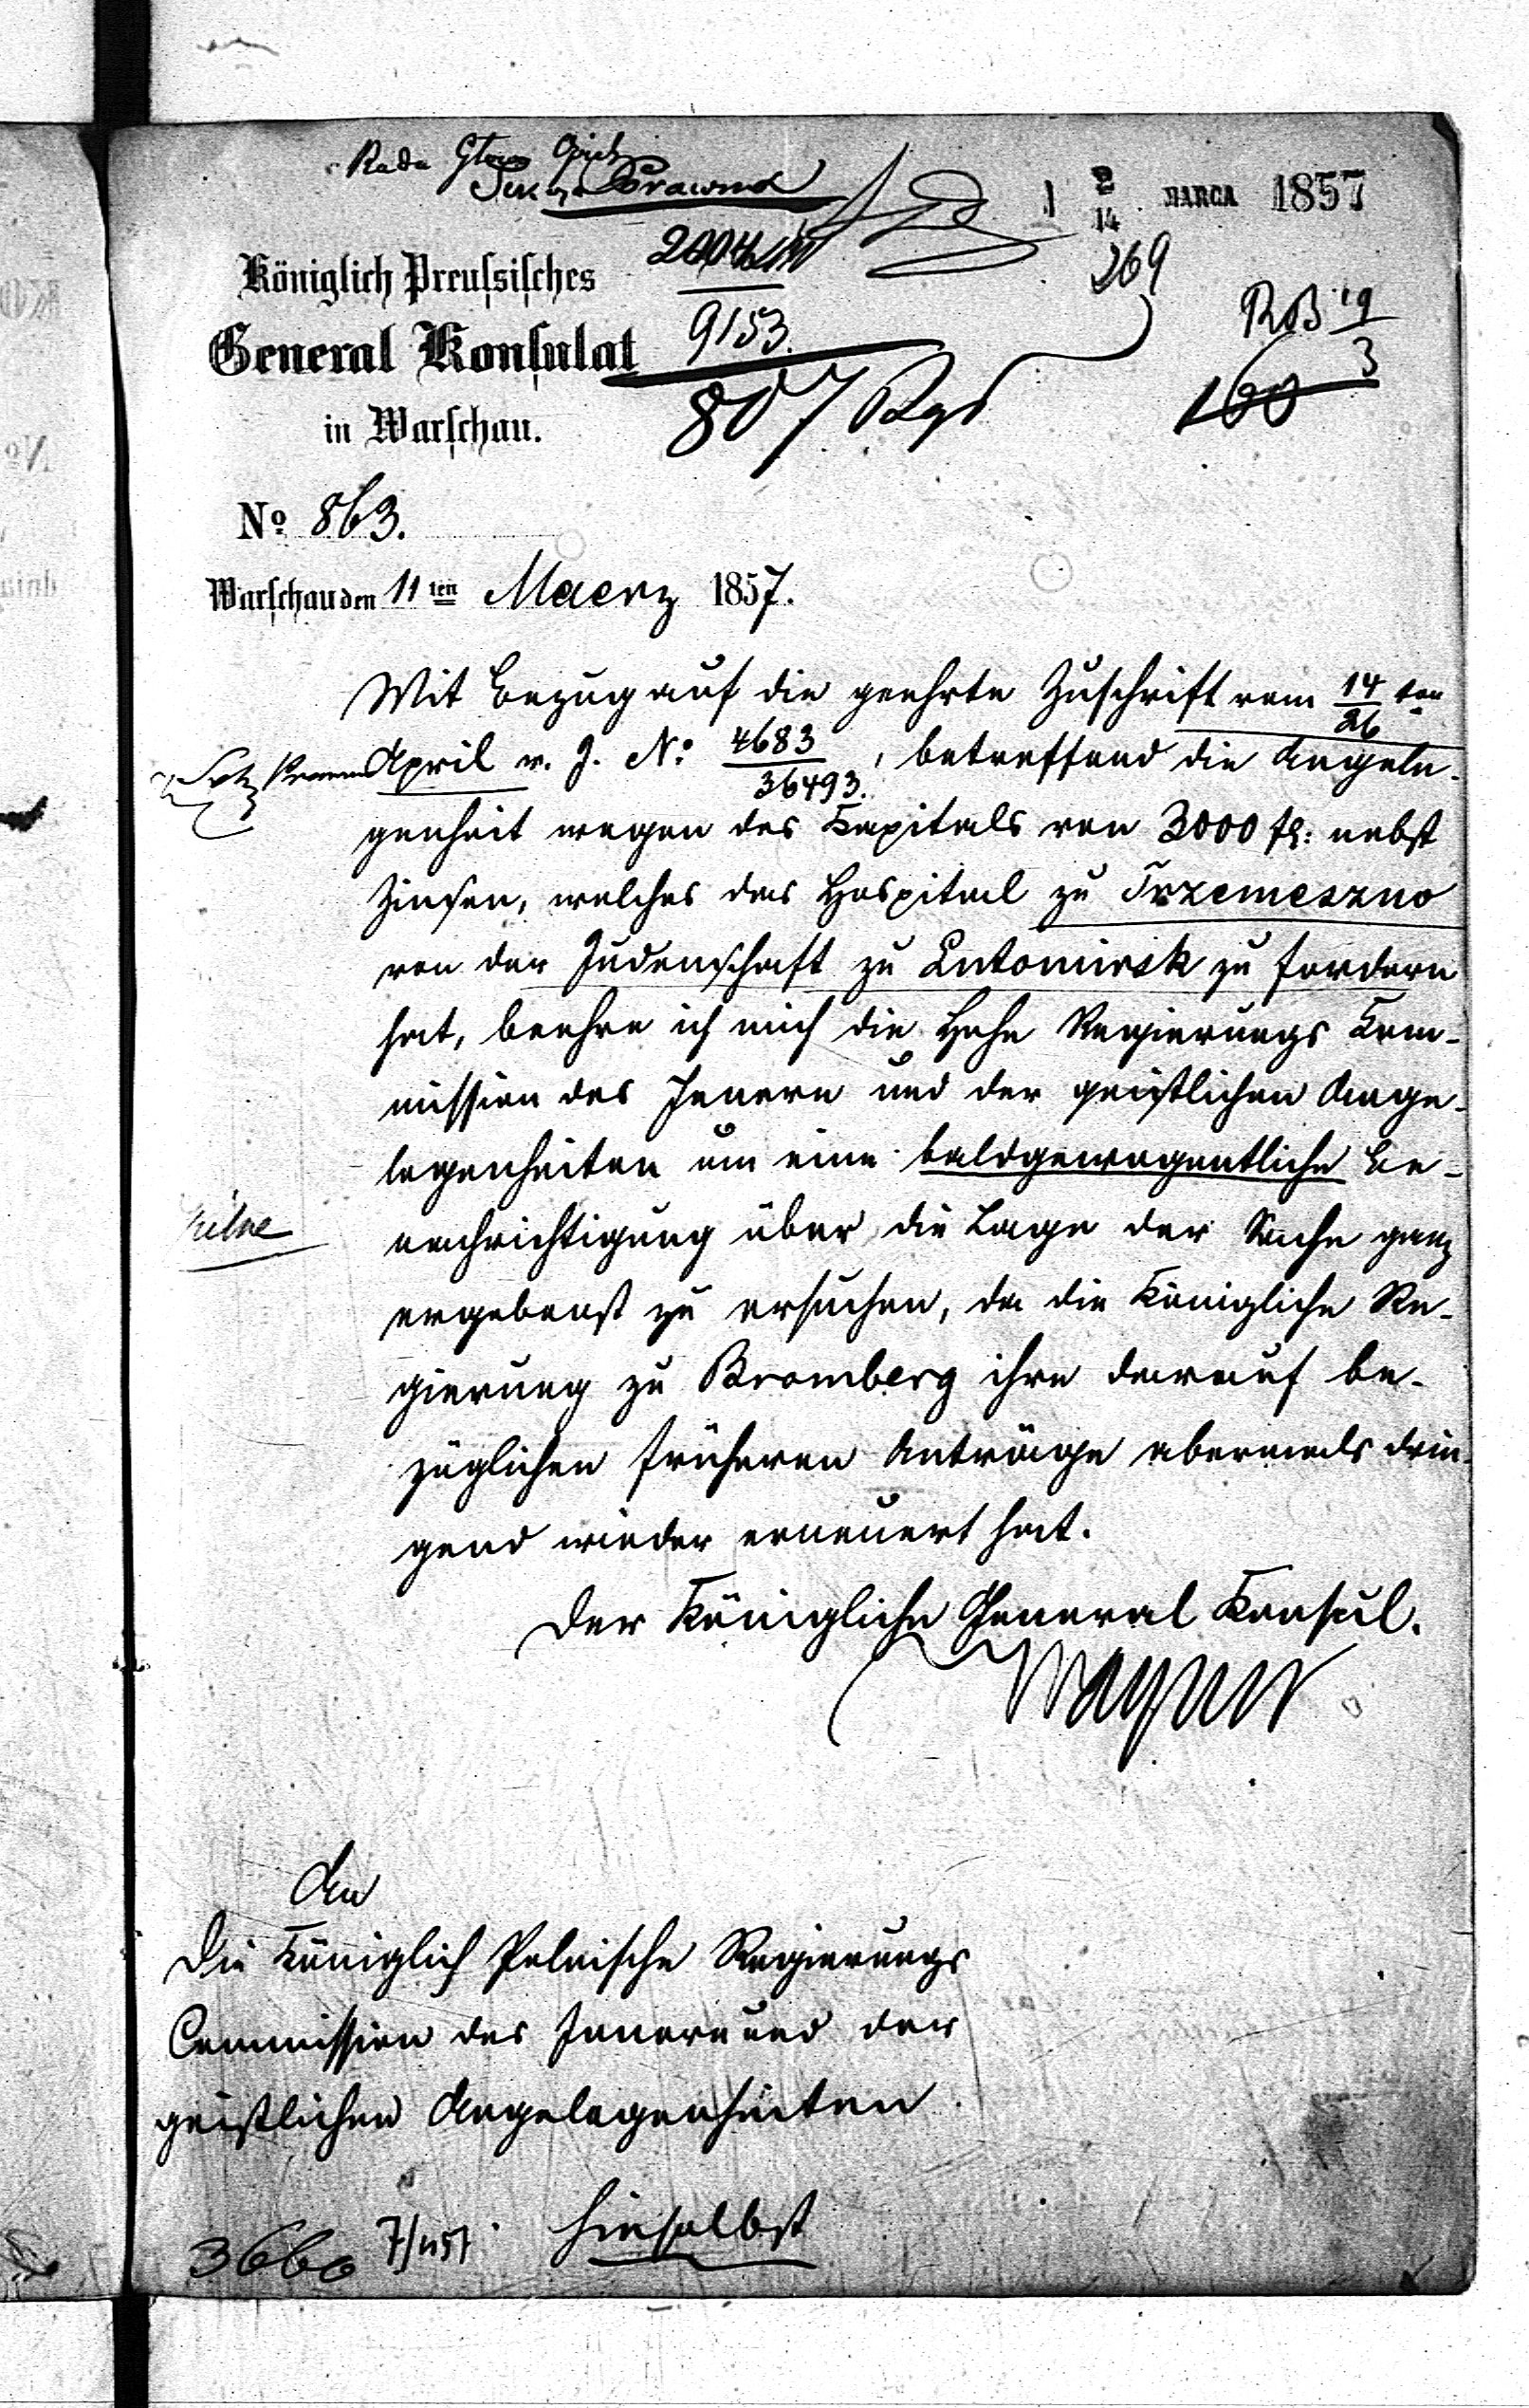 Rada Głow Opiek
Sekcya Prawna
2/14 MARCA 1857
269
Königlich Preussisches
9153.
RB 19/3
General Konsulat
807 Rgs
160
in Warschau.
No 863.
Warschau den 11ten Maerz 1857.
Mit Bezug auf die geehrte Zuschrift vom 14/26 ten
April v. J. No. 4683/36493., betreffend die Angele-
genheit wegen des Kapitals von 3000 fl: nebst
Zinsen, welches das Hospital zu Trzemeszno
von der Judenschaft zu Lutomirsk zu fordern
hat, beehre ich mich die Hohe Regierungs Kom-
mission des Innern und der geistlichen Ange-
legenheiten um eine baldgewogentliche Be-
nachrichtigung über die Lage der Sache ganz
pilne
ergebenst zu ersuchen, da die Königliche Re-
gierung zu Bromberg ihre darauf be-
züglichen früheren Anträge abermals drin-
gend wieder erneuert hat.
Der Königliche General Konsul.
Wagner
An
die Königlich Polnische Regierungs
Commission des Innern und der
geistlichen Angelegenheiten
hieselbst
3660